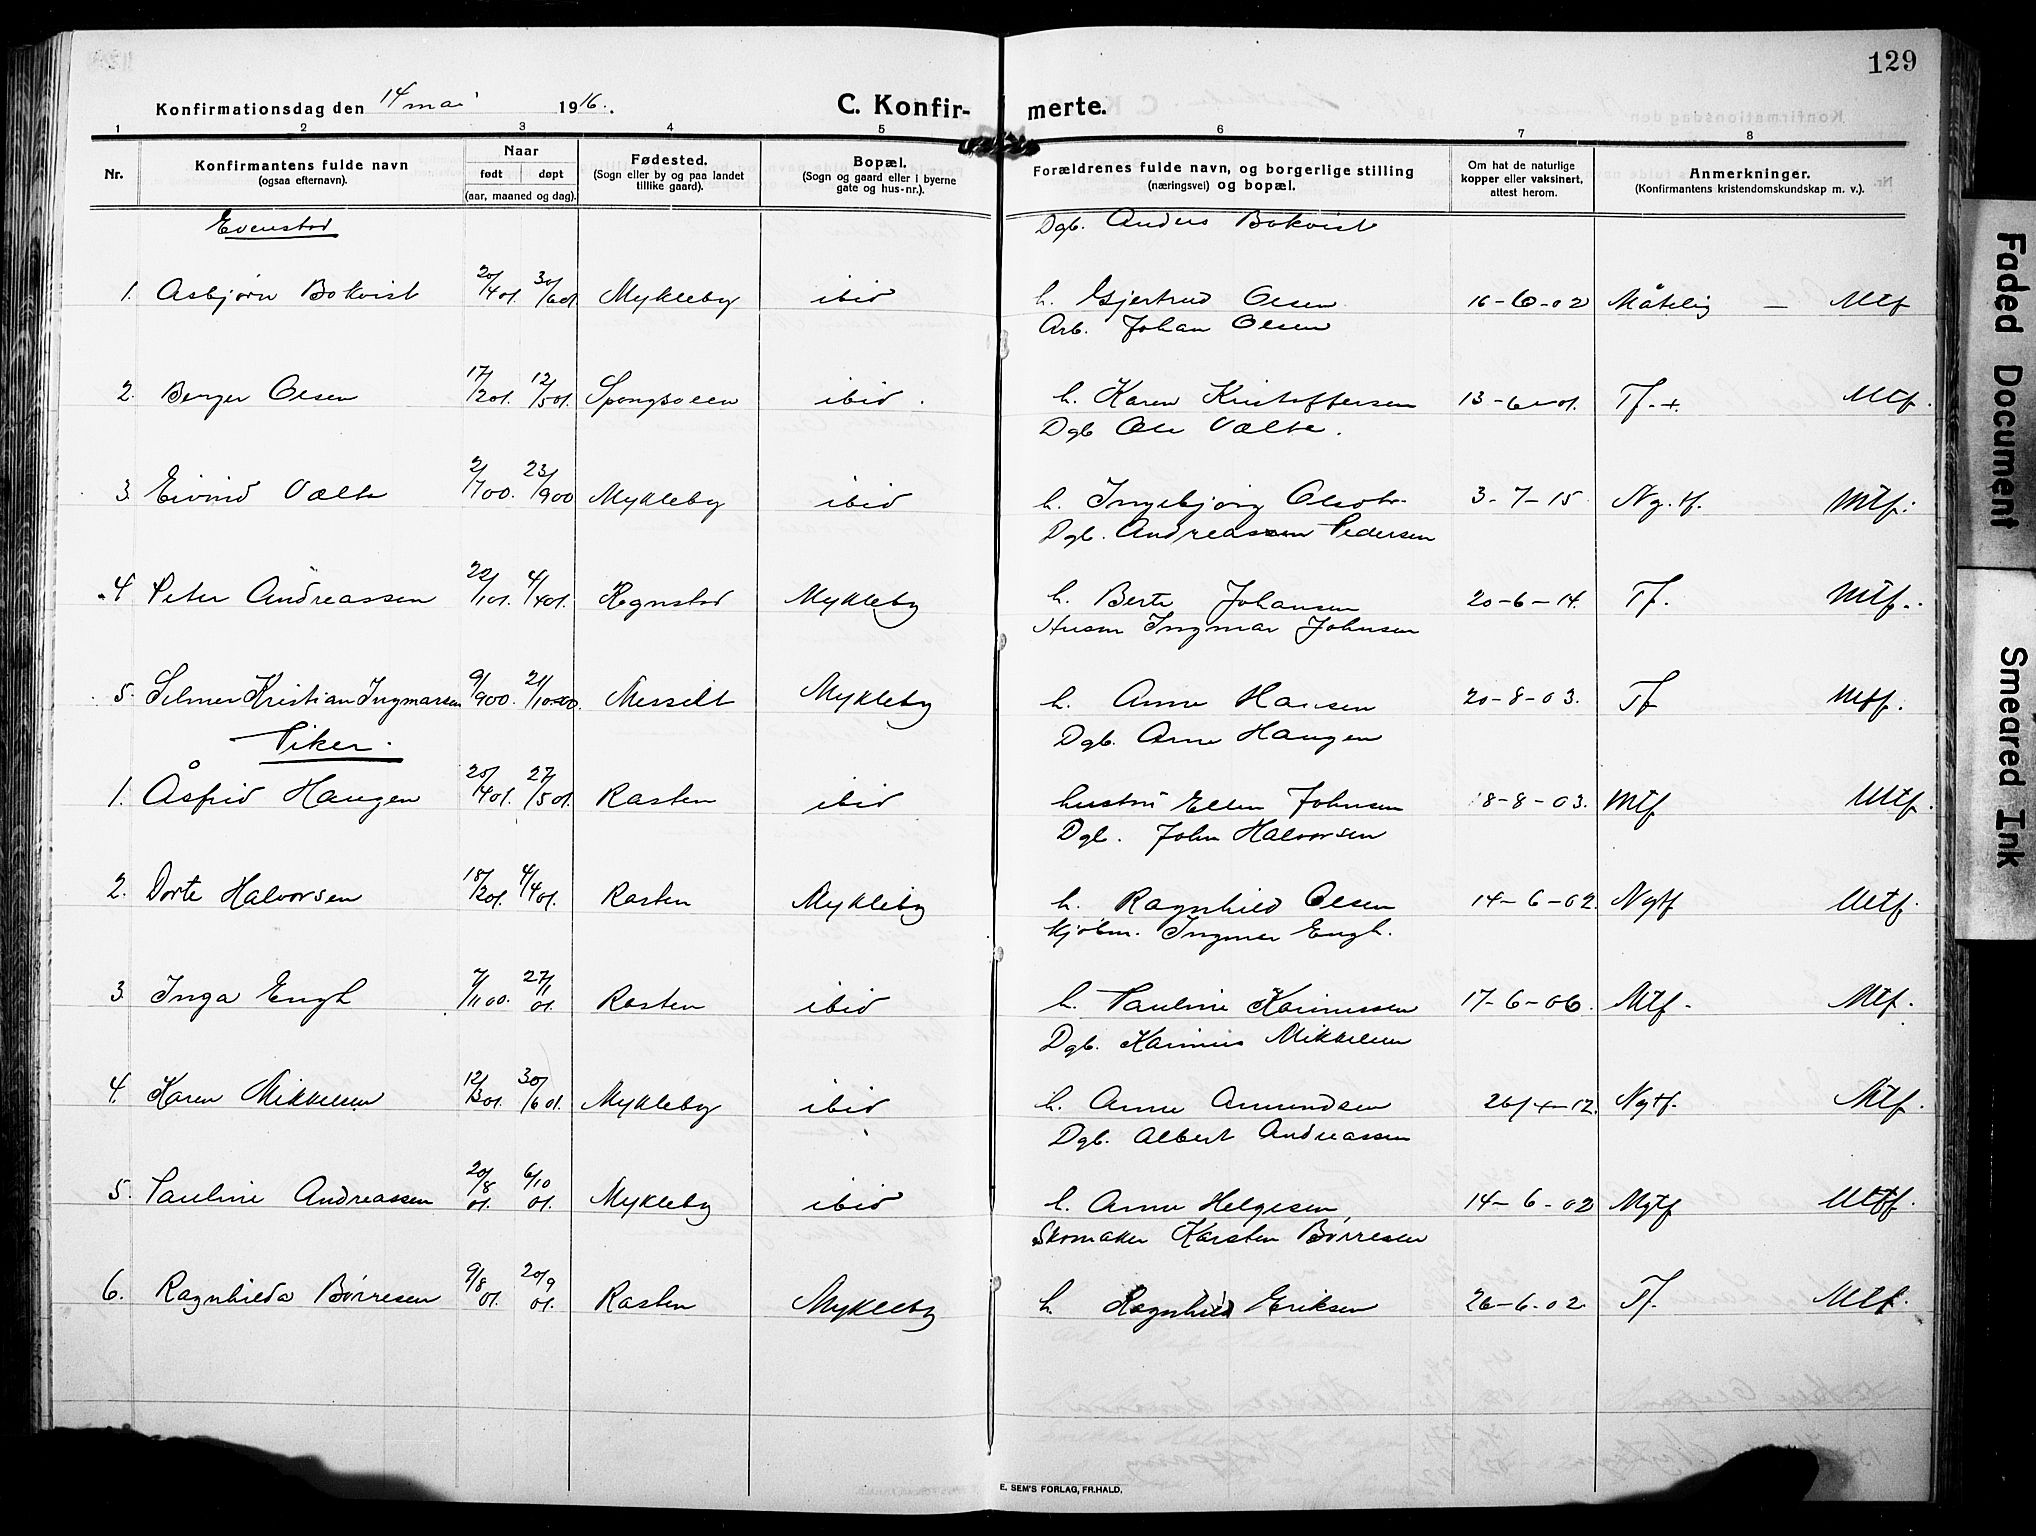 129
Konfirmationsdag den 14 mai 1916.
C. Konfir- merte.
1 2 3 4 5 6 7 8
Nr.
Konfirmantens fulde navn
(ogsaa efternavn).
Naar
født døpt
(aar, maaned og dag).
Fødested.
(Sogn eller by og paa landet
tillike gaard).
Bopæl.
(Sogn og gaard eller i byerne
gate og hus-nr.).
Forældrenes fulde navn, og borgerlige stilling
(næringsvei) og bopæl.
Om hat de naturlige
kopper eller vaksinert,
attest herom.
Anmerkninger.
(Konfirmantens kristendomskundskap m. v.).
Evenstad
Dgb. Anders Bokvist
1. Asbjørn Bokvist 20/4 01. 30/6 01 Mykleby ibid h. Gjertrud Olsen 16-6-02 Måtelig — Mtf
Arb. Johan Olsen
2. Berger Olsen 17/2 01. 12/5 01. ibid. h. Karen Kristoffersen 13-6-01. Tf.+. Mtf.
Dgb Ole Vælte.
3. Eivind Vælte 2/7 00. 23/9 00 Mykleby ibid h. Ingebjørg Olsdtr. 3-7-15 Ng. tf. Mtf.
Dgb. Andreassen Pedersen
4 Peter Andreassen 22/1 01. 4/4 01. Regnstad Mykleby h. Berte Johansen 20-6-14. Tf. Mtf.
Husm Ingmar Johnsen
5. Selmer Kristian Ingmarsen 9/9 00. 21/10 00. Messelt Mykleby h. Anne Hansen 20-8-03. Tf Mtf.
Piker.
Dgb. Arne Haugen
1. Åsfrid Haugen 20/4 01. 27/5 01. Rasten ibid hustru Ellen Johnsen 18-8-03. Mtf Mtf.
Dgb. John Halvorsen
2. Dorte Halvorsen 18/2 01. 4/4 01. Rasten Mykleby h. Ragnhild Olsen 14-6-02. Ngtf Mtf.
Kjøbm. Ingmar Engh.
3 Inga Engh 7/11 00. 27/11 01. Rasten ibid h. Pauline Karinussen 17-6-06. Mtf. Mtf.
Dgb. Karinius Mikkelsen
4. Karen Mikkelsen 12/3 01. 30/6 01. Mykleby ibid h. Anne Amundsen 26/4-12. Ngtf. Mtf.
Dgb. Albert Andreassen
5. Pauline Andreassen 20/8 01. 6/10 01. Mykleby ibid h. Anne Helgesen 14-6-02 Mgtf Mtf.
Skomaker Karsten Børresen
6. Ragnhilda Børresen 9/8 01. 20/9 01. Rasten Mykleby h. Ragnhild Eriksen 26-6-02 Tf. Mtf.
E. SEM'S FORLAG, FR.HALD.
Faded Document
Smeared Ink